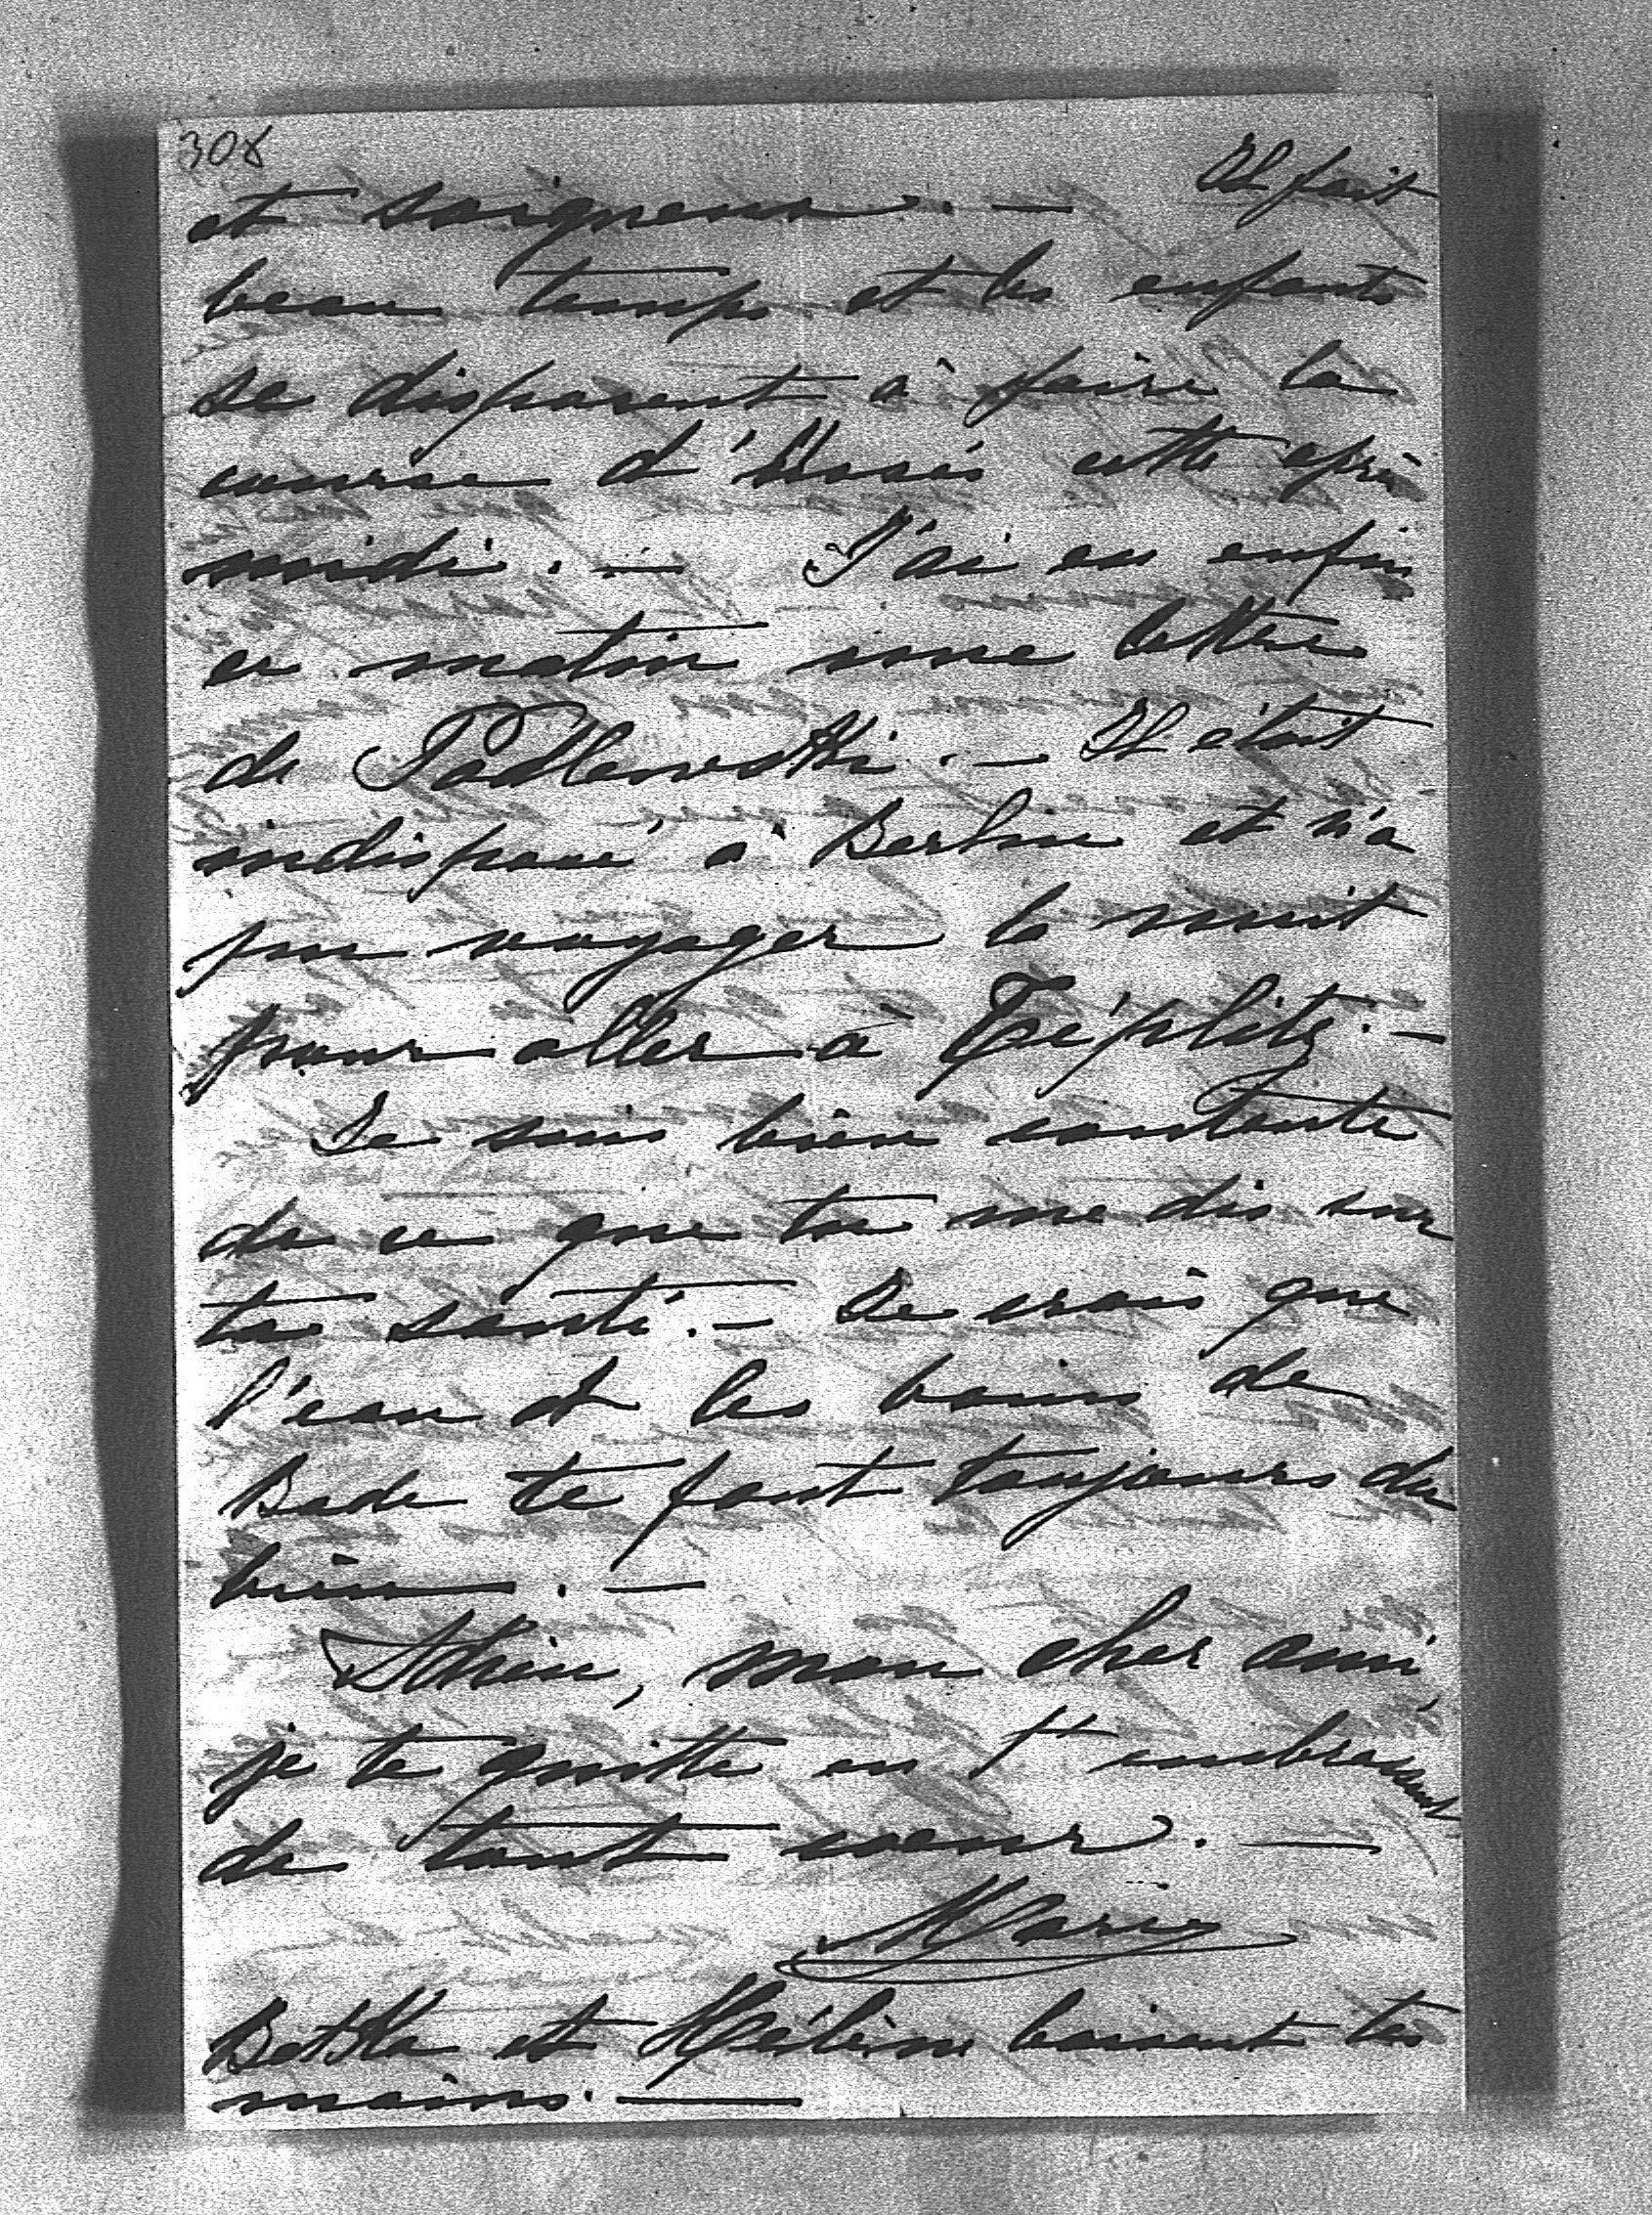 308
et soigneux. — Il fait
beau temps et les enfants
se disposent à faire la
course d' cette après
midi. — J'ai eu enfin
ce matin une lettre
de Podlewski. — Il était
indisposé à Berlin et n'a
pu voyager la nuit
pour aller à Téplitz. —
Je suis bien contente
de ce que tu me dis sur
ta santé. — Je crois que
l'eau et les bains de
Bade te font toujours du
bien. —
Adieu, mon cher ami,
je te quitte en t'embrassant
de tout coeur. —
Marie
Betka et Hélène baisent tes
mains. —